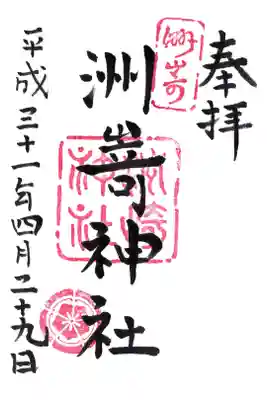 奉拝
洲嵜
洲嵜神社
平成三十一年四月二十九日